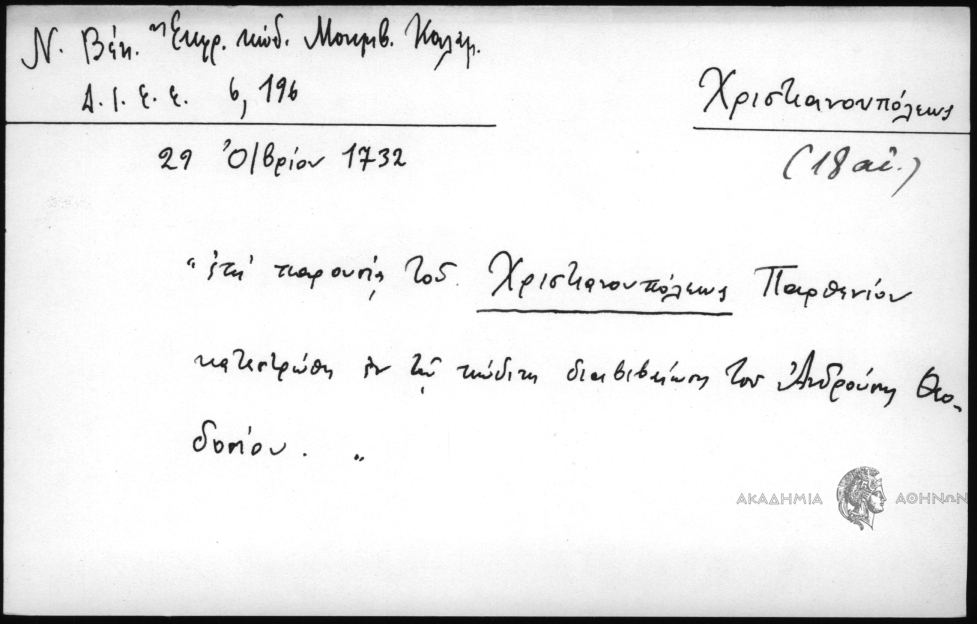 Ν. Βέη. "Ἐκκρ. κώδ. Μονεμβ. Καλαμ.
Δ. Ι. Ε. Ε. 6, 196
Χριστιανουπόλεως
29 Ὀ/βρίου 1732
(18 αἰ.)
"ἐπὶ παρουσίᾳ τοῦ Χριστιανουπόλεως Παρθενίου
κατεστρώθη ἐν τῷ κώδικι διαβεβαίωσις τοῦ Ἀνδρούσης Θεο-
δοσίου. "
ΑΚΑΔΗΜΙΑ ΑΘΗΝΩΝ